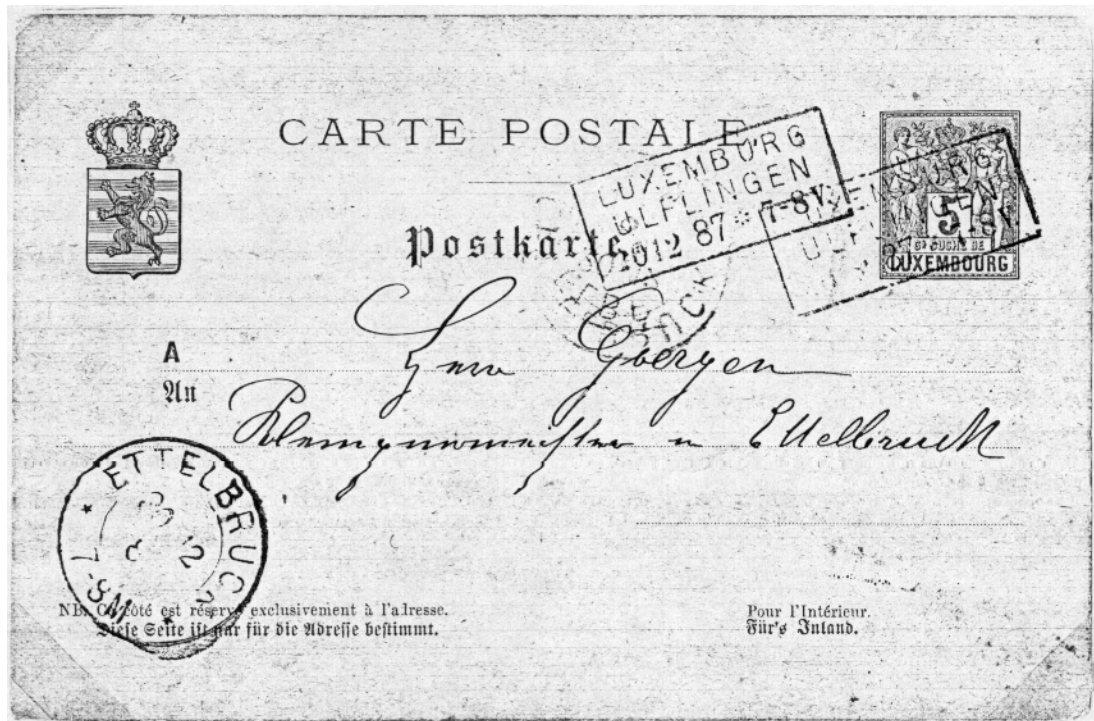 CARTE POSTALE
LUXEMBURG
ULFLINGEN
20 12 87 * 7-8V.
5
GD DUCHÉ DE
LUXEMBOURG
Postkarte
A
An
Herr Goergen
in Ettelbruck
* ETTELBRUCK *
12
7-8M
NB. Ce côté est réservé exclusivement à l'adresse.
Diese Seite ist nur für die Adresse bestimmt.
Pour l'Intérieur.
Für's Inland.